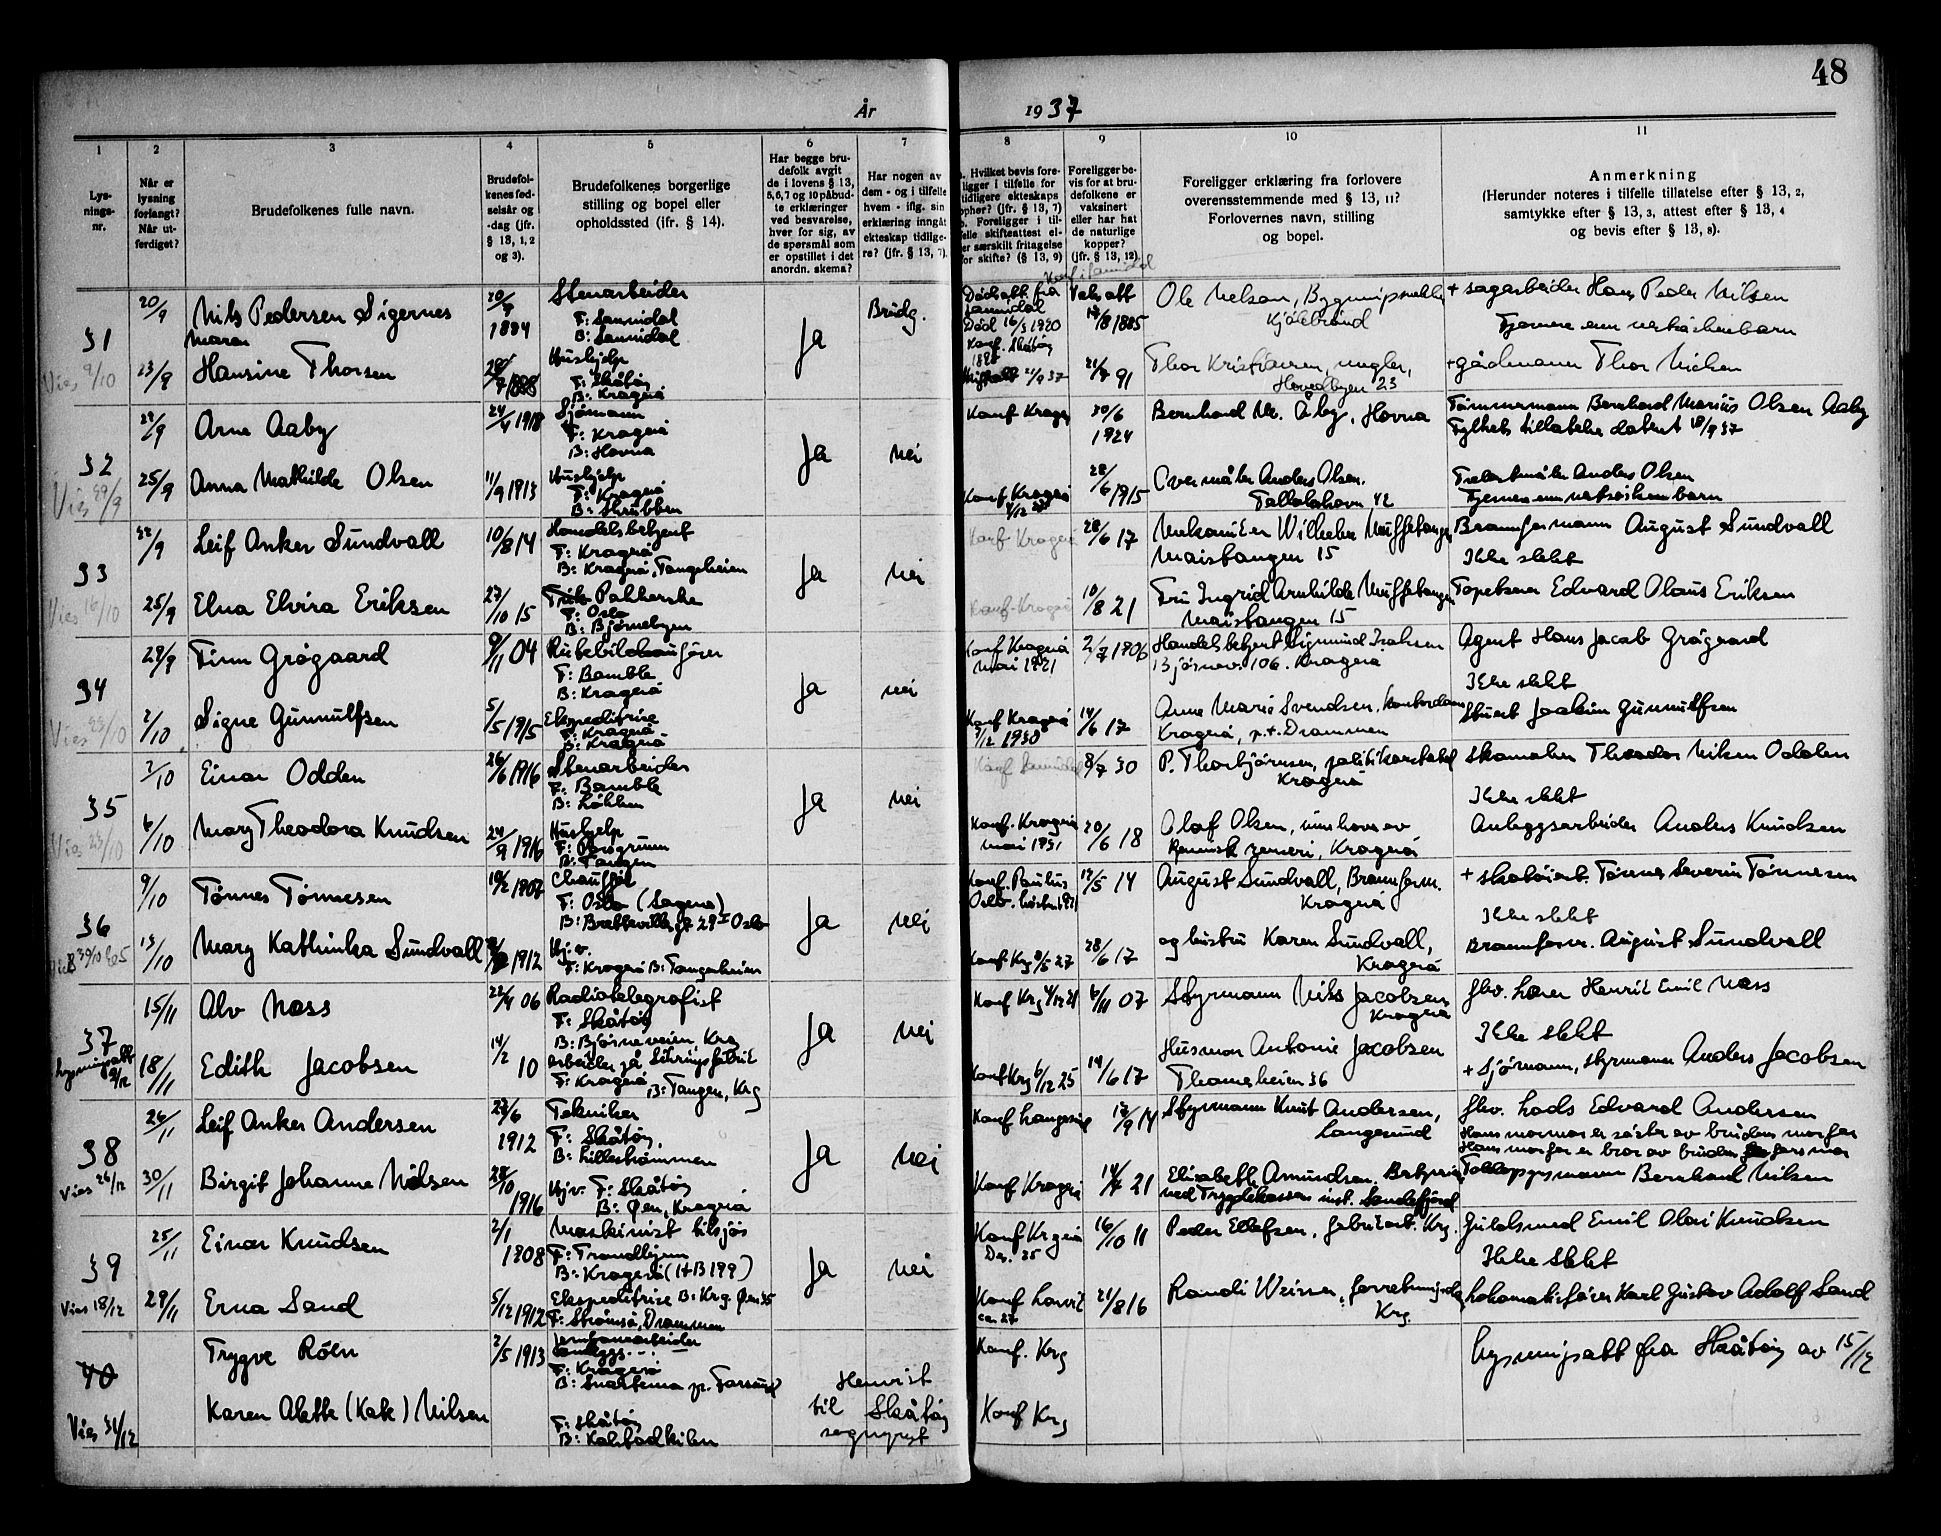 48
År 1937
1
Lys-
nings-
nr.
2
Når er
lysning
forlangt?
Når ut-
ferdiget?
3
Brudefolkenes fulle navn.
4
Brudefol-
kenes fød-
selsår og
-dag (jfr.
§ 13, 1,2
og 3).
5
Brudefolkenes borgerlige
stilling og bopel eller
opholdssted (ifr. § 14).
6
Har begge bru-
defolk avgit
de i lovens § 13,
5,6,7 og 10 påbud-
te erklæringer
ved besvarelse,
hver for sig, av
de spørsmål som
er opstillet i det
anordn. skema?
7
Har nogen av
dem - og i tilfelle
hvem - iflg. sin
erklæring inngått
ekteskap tidlige-
re? (jfr. § 13, 7).
8
Hvilket bevis fore-
ligger i tilfelle for
tidligere ekteskaps
ophør? (jfr. § 13, 7)
Foreligger i til-
felle skifteattest el-
er særskilt fritagelse
for skifte? (§ 13, 9)
9
Foreligger be-
vis for at bru-
defolkene er
vaksinert
eller har hat
de naturlige
kopper?
(jfr. § 13, 12)
10
Foreligger erklæring fra forlovere
overensstemmende med § 13, 11?
Forlovernes navn, stilling
og bopel.
11
Anmerkning
(Herunder noteres i tilfelle tillatelse efter § 13, 2,
samtykke efter § 13, 3, attest efter § 13, 4
og bevis efter § 13, 8).
31
Vies 9/10
20/9
Nils Pedersen Sigernes
1884
Stenarbeider
F: Sannidal
B: Sannidal
Ja
Brudg.
Dødsatt. fra
Sannidal
Død 16/3 1920
Vaks att
1885
Ole Nelson
+ sagarbeider Hans Peder Nilsen
Fjernere enn netsøskenbarn
23/9
Maren
Hansine Thorsen
1888
Hushjelp
F: Skåtøy
B: Kragerø
Konf. Skåtøy
21/7 91
Thor Kristiansen, ungkar,
23
+ gårdmann Thor Nielsen
32
Vies 29/9
24/9
Arne Aaby
24/4 1918
Sjømann
F: Kragerø
B: Hovna
Ja
nei
Konf Kragø
30/6
1924
Bernhard M. Åby, Hovna
Tømmermann Bernhard Marius Olsen Aaby
Fylkets tillatelse datert 18/9 37
25/9
Anna Mathilde Olsen
11/9 1913
Hushjelp
F: Kragerø
B: Skrubben
Konf. Kragerø
28/6 1915
Anders Olsen.
42
Anders Olsen
Fjernere enn netsøskenbarn
33
Vies 16/10
22/9
Leif Anker Sundvall
10/8 14
Handelsbetjent
F: Kragerø
B: Kragerø, Tangeheien
Ja
nei
Konf. Kragerø
28/6 17
Mekaniker Wilhelm
15
Brannformann August Sundvall
Ikke slekt
25/9
Elna Elvira Eriksen
27/10 15
F: Oslo
B: Bjørnebyen
Konf. Kragerø
10/8 21
Fru Ingrid Arnhilde
15
Tapetserer Edvard Olaus Eriksen
34
Vies 23/10
28/9
Finn Grøgaard
9/11 04
Rutebilchaufører
F: Bamble
B: Kragerø
Ja
nei
Konf Kragerø
mai 1921
2/7 1906
Handelsbetjent Sigmund Isaksen
106. Kragerø
Agent Hans Jacob Grøgaard
Ikke slekt
2/10
Signe Gunnulfsen
5/5 1915
Ekspeditrise
F: Kragerø
B: Kragerø
Konf Kragerø
7/12 1930
14/6 17
Anne Marie Svendsen, kontordame
Kragerø, p.t. Drammen
Stuert Joakim Gunnulfsen
35
Vies 23/10
2/10
Einar Odden
26/6 1916
Stenarbeider
F: Bamble
B: Løkken
Ja
nei
Konf Sannidal
8/7 30
P. Thorbjørnsen, politikonstabel
Kragerø
Skomaker Theodor Nilsen Odden
Ikke slekt
6/10
Mary Theodora Knudsen
24/9 1916
Hushjelp
F: Porsgrunn
B: Tangen
Konf. Kragerø
mai 1931
20/6 18
Olaf Olsen, innehaver av
Kemisk renseri, Kragerø
Anleggsarbeider Anders Knudsen
36
9/10
Tønnes Tønnesen
19/2 1907
Chauffør
F: Oslo (Sagene)
Ja
nei
Konf. Paulus
Oslo. høsten 1921
14
August Sundvall, Brannform.
Kragerø
+ skotøiarb. Tønnes Severin Tønnesen
Ikke slekt
13/10
Mary Kathinka Sundvall
1912
Hj.v.
F: Kragerø B: Tangenheien
28/6 17
og hustru Karen Sundvall,
Kragerø
Brannform. August Sundvall
37
Lysningsatt
15/11
Alv Næss
22/4 06
Radiotelegrafist
F: Skåtøy
B: Bjørneveien, Krg
Ja
nei
Konf Krg
6/11 07
Styrmann Nils Jacobsen
Kragerø
fhv. lærer Henrik Emil Næss
Ikke slekt
18/11
Edith Jacobsen
14/2 10
F: Kragerø B: Tangen, Krg
Konf Krg 6/12 25
14/6 17
Husmor Antonie Jacobsen
36
+ sjømann, styrmann Anders Jacobsen
38
Vies 26/12
26/11
Leif Anker Andersen
27/6
1912
Tekniker
F: Skåtøy,
B: Lillestrømmen
Ja
nei
Konf Langesund
17/9 14
Styrmann Knut Andersen,
Langesund
fhv. Lods Edvard Andersen
Hans mormor er søster av brudens morfar
Hans morfar er bror av brudens farmor
30/11
Birgit Johanne Nilsen
28/10
1916
Hjv. F: Skåtøy
B: Øen, Kragerø
Konf Kragerø
14/7 21
Elisabeth Amundsen
ved Trygdekassen inst. Sandefjord
Bernhard Nilsen
39
Vies 18/12
25/11
Einar Knudsen
2/1
1908
Maskinist tilsjøs
F: Trondhjem
B: Kragerø (H+B 199)
Ja
nei
Konf Krgerø
16/10 11
Peder Ellefsen, fabrikarb. Krg.
Gullsmed Emil Olai Knudsen
Ikke slekt
29/11
Erna Sand
5/12 1912
Ekspeditrise B: Krg. Øen 35
F: Strømsø, Drammen
Konf Larvik
ca. 27
21/8 16
Randi
Krg.
Lokomotivfører Karl Gustav Adolf Sand
40
Vies 31/12
Trygve Róen
2/5 1913
F: Kragerø
Henvist
til Skåtøy
sogneprest
Konf. Krg
Lysningsatt fra Skåtøy av 15/12
Karen Alette (Kate) Nilsen
F: Skåtøy
B: Kalstadkilen
Konf Krg